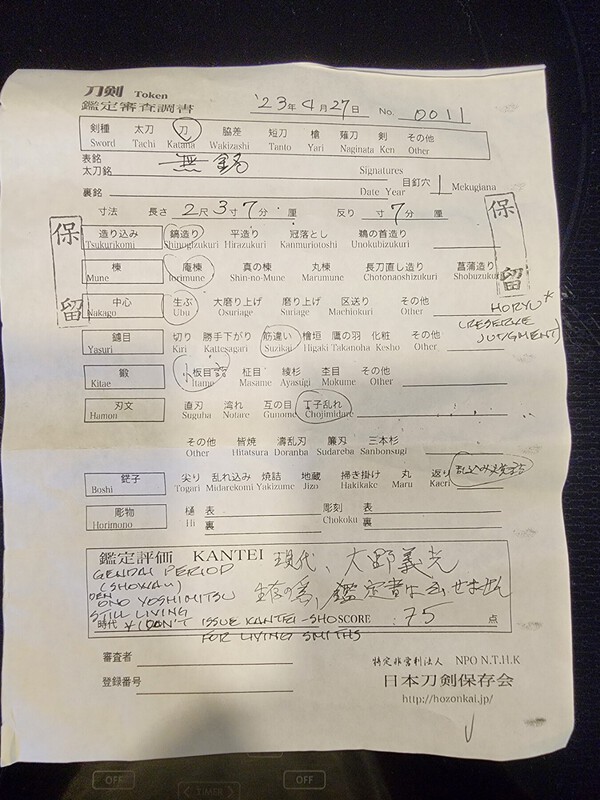 刀剣 Token
鑑定審査調書 '23年4月27日 No. 0011
剣種 太刀 刀 脇差 短刀 槍 薙刀 剣 その他
Sword Tachi Katana Wakizashi Tanto Yari Naginata Ken Other
表銘
太刀銘 無銘 Signatures
裏銘 Date Year 目釘穴 1 Mekugiana
寸法 長さ 2尺3寸7分 厘 反り 寸7分 厘
保留
保留
造り込み 鎬造り 平造り 冠落とし 鵜の首造り
Tsukurikomi Shinogizukuri Hirazukuri Kanmuriotoshi Unokubizukuri
棟 庵棟 真の棟 丸棟 長刀直し造り 菖蒲造り
Mune Iorimune Shin-no-Mune Marumune Chotonaoshizukuri Shobuzukuri
中心 生ぶ 大磨り上げ 磨り上げ 区送り その他
Nakago Ubu Osuriage Suriage Machiokuri Other
HORYU*
(RESERVE JUDGMENT)
鑢目 切り 勝手下がり 筋違い 檜垣 鷹の羽 化粧 その他
Yasuri Kiri Kattesagari Suzikai Higaki Takanoha Kesho Other
鍛 小板目 柾目 綾杉 杢目 その他
Kitae Itame Masame Ayasugi Mokume Other
刃文 直刃 湾れ 互の目 丁子乱れ
Hamon Suguha Notare Gunome Chojimidare
その他 皆焼 濤乱刃 簾刃 三本杉
Other Hitatsura Doranba Sudareba Sanbonsugi
鋩子 尖り 乱れ込み 焼詰 地蔵 掃き掛け 丸 返り
Boshi Togari Midarekomi Yakizume Jizo Hakikake Maru Kaeri
彫物 樋 表 彫刻 表
Horimono Hi 裏 Chokoku 裏
鑑定評価 KANTEI 現代、大野義光
GENDAI PERIOD
(SHOWA)
DEN
ONO YOSHIMITSU 生存の為、鑑定書は出せません
STILL LIVING
時代 * (DON'T ISSUE KANTEI-SHO SCORE 75 点
FOR LIVING SMITHS
審査者
登録番号
特定非営利法人 NPO N.T.H.K
日本刀剣保存会
http://hozonkai.jp/